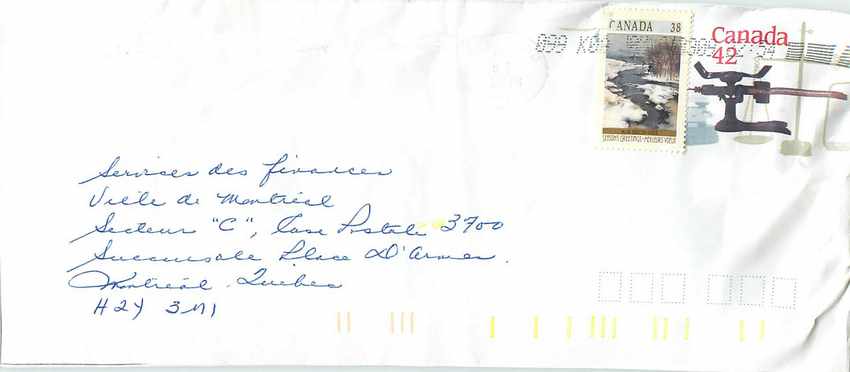 CANADA 38
Canada
42
SEASON'S GREETINGS • MEILLEURS VOEUX
Services des finances
Ville de Montréal
Secteur "C", Case Postale 3700
Succursale Place D'Armes.
Montréal. Quebec
H2Y 3M1